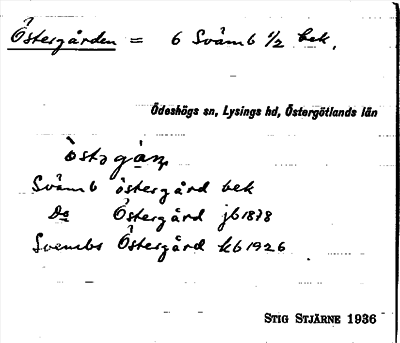 Östergården = 6 Svämb 1/2 bek.
Ödeshögs sn, Lysings hd, Östergötlands län
östəgån
Svämb östergård bek
Do Östergård jb 1878
Svembs Östergård kb 1926
STIG STJÄRNE 1936